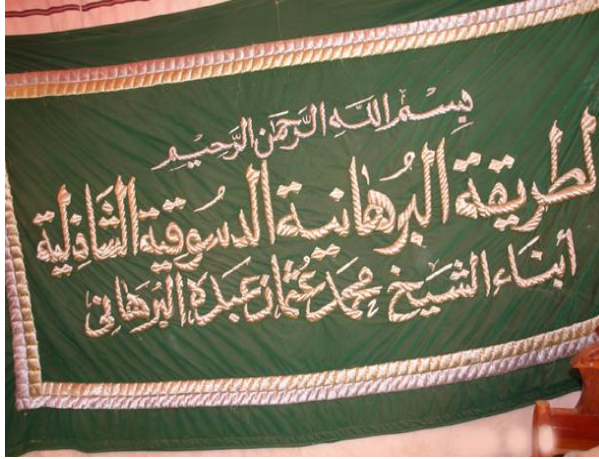 بِسْمِ اللهِ الرَّحْمٰنِ الرَّحِيْمِ
لطريقة البُرهانية الدسوقية الشاذلية
أبناء الشيخ محمد عثمان عبده البرهاني